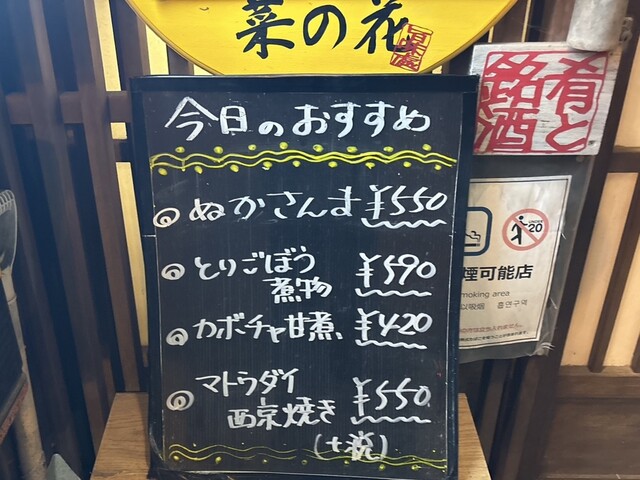 菜の花
今日のおすすめ
ぬかさんま ¥550
とりごぼう
煮物 ¥590
カボチャ甘煮、 ¥420
マトウダイ
西京焼き ¥550
(+税)
肴と
銘酒
UNDER
20
煙可能店
moking area
以吸烟 흡연구역